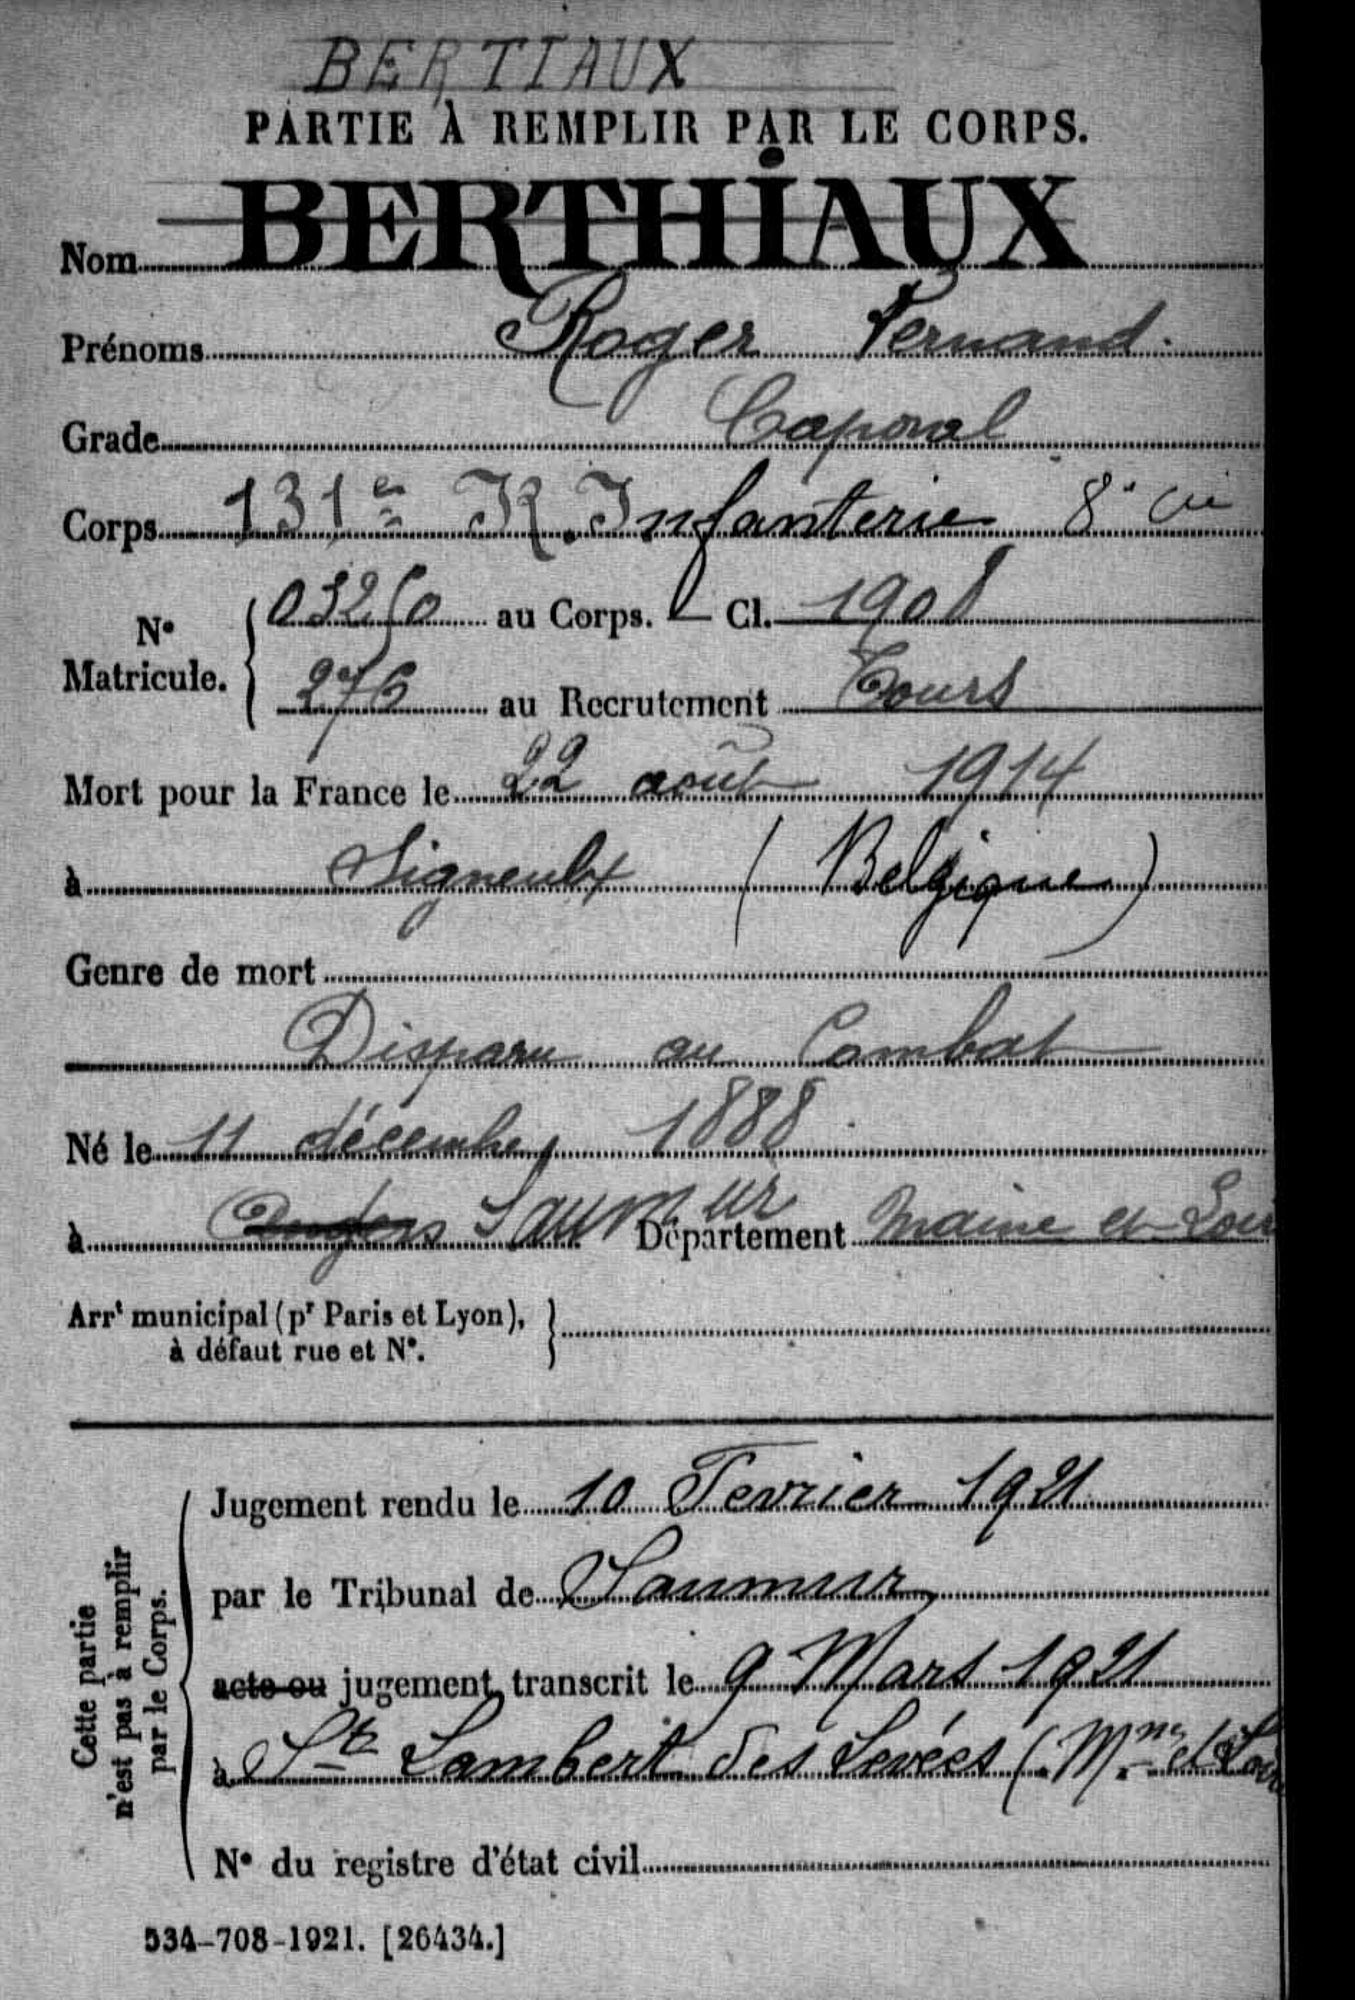 BERTIAUX
PARTIE À REMPLIR PAR LE CORPS.
Nom BERTHIAUX
Prénoms Roger Fernand.
Grade Caporal
Corps 131e R. Infanterie 8e Cie
N° Matricule. 03250 au Corps. — Cl. 1908
276 au Recrutement Tours
Mort pour la France le 22 août 1914
à Signeulx (Belgique)
Genre de mort
Disparu au Combat
Né le 11 décembre 1888
à Angers Saumur Département Maine et Loir
Arrt municipal (pr Paris et Lyon),
à défaut rue et N°.
Jugement rendu le 10 Fevrier 1921
par le Tribunal de Saumur
acte ou jugement transcrit le 9 Mars 1921
à St Lambert des Levées (Mne et Loire
N° du registre d'état civil
Cette partie
n'est pas à remplir
par le Corps.
534-708-1921. [26434.]